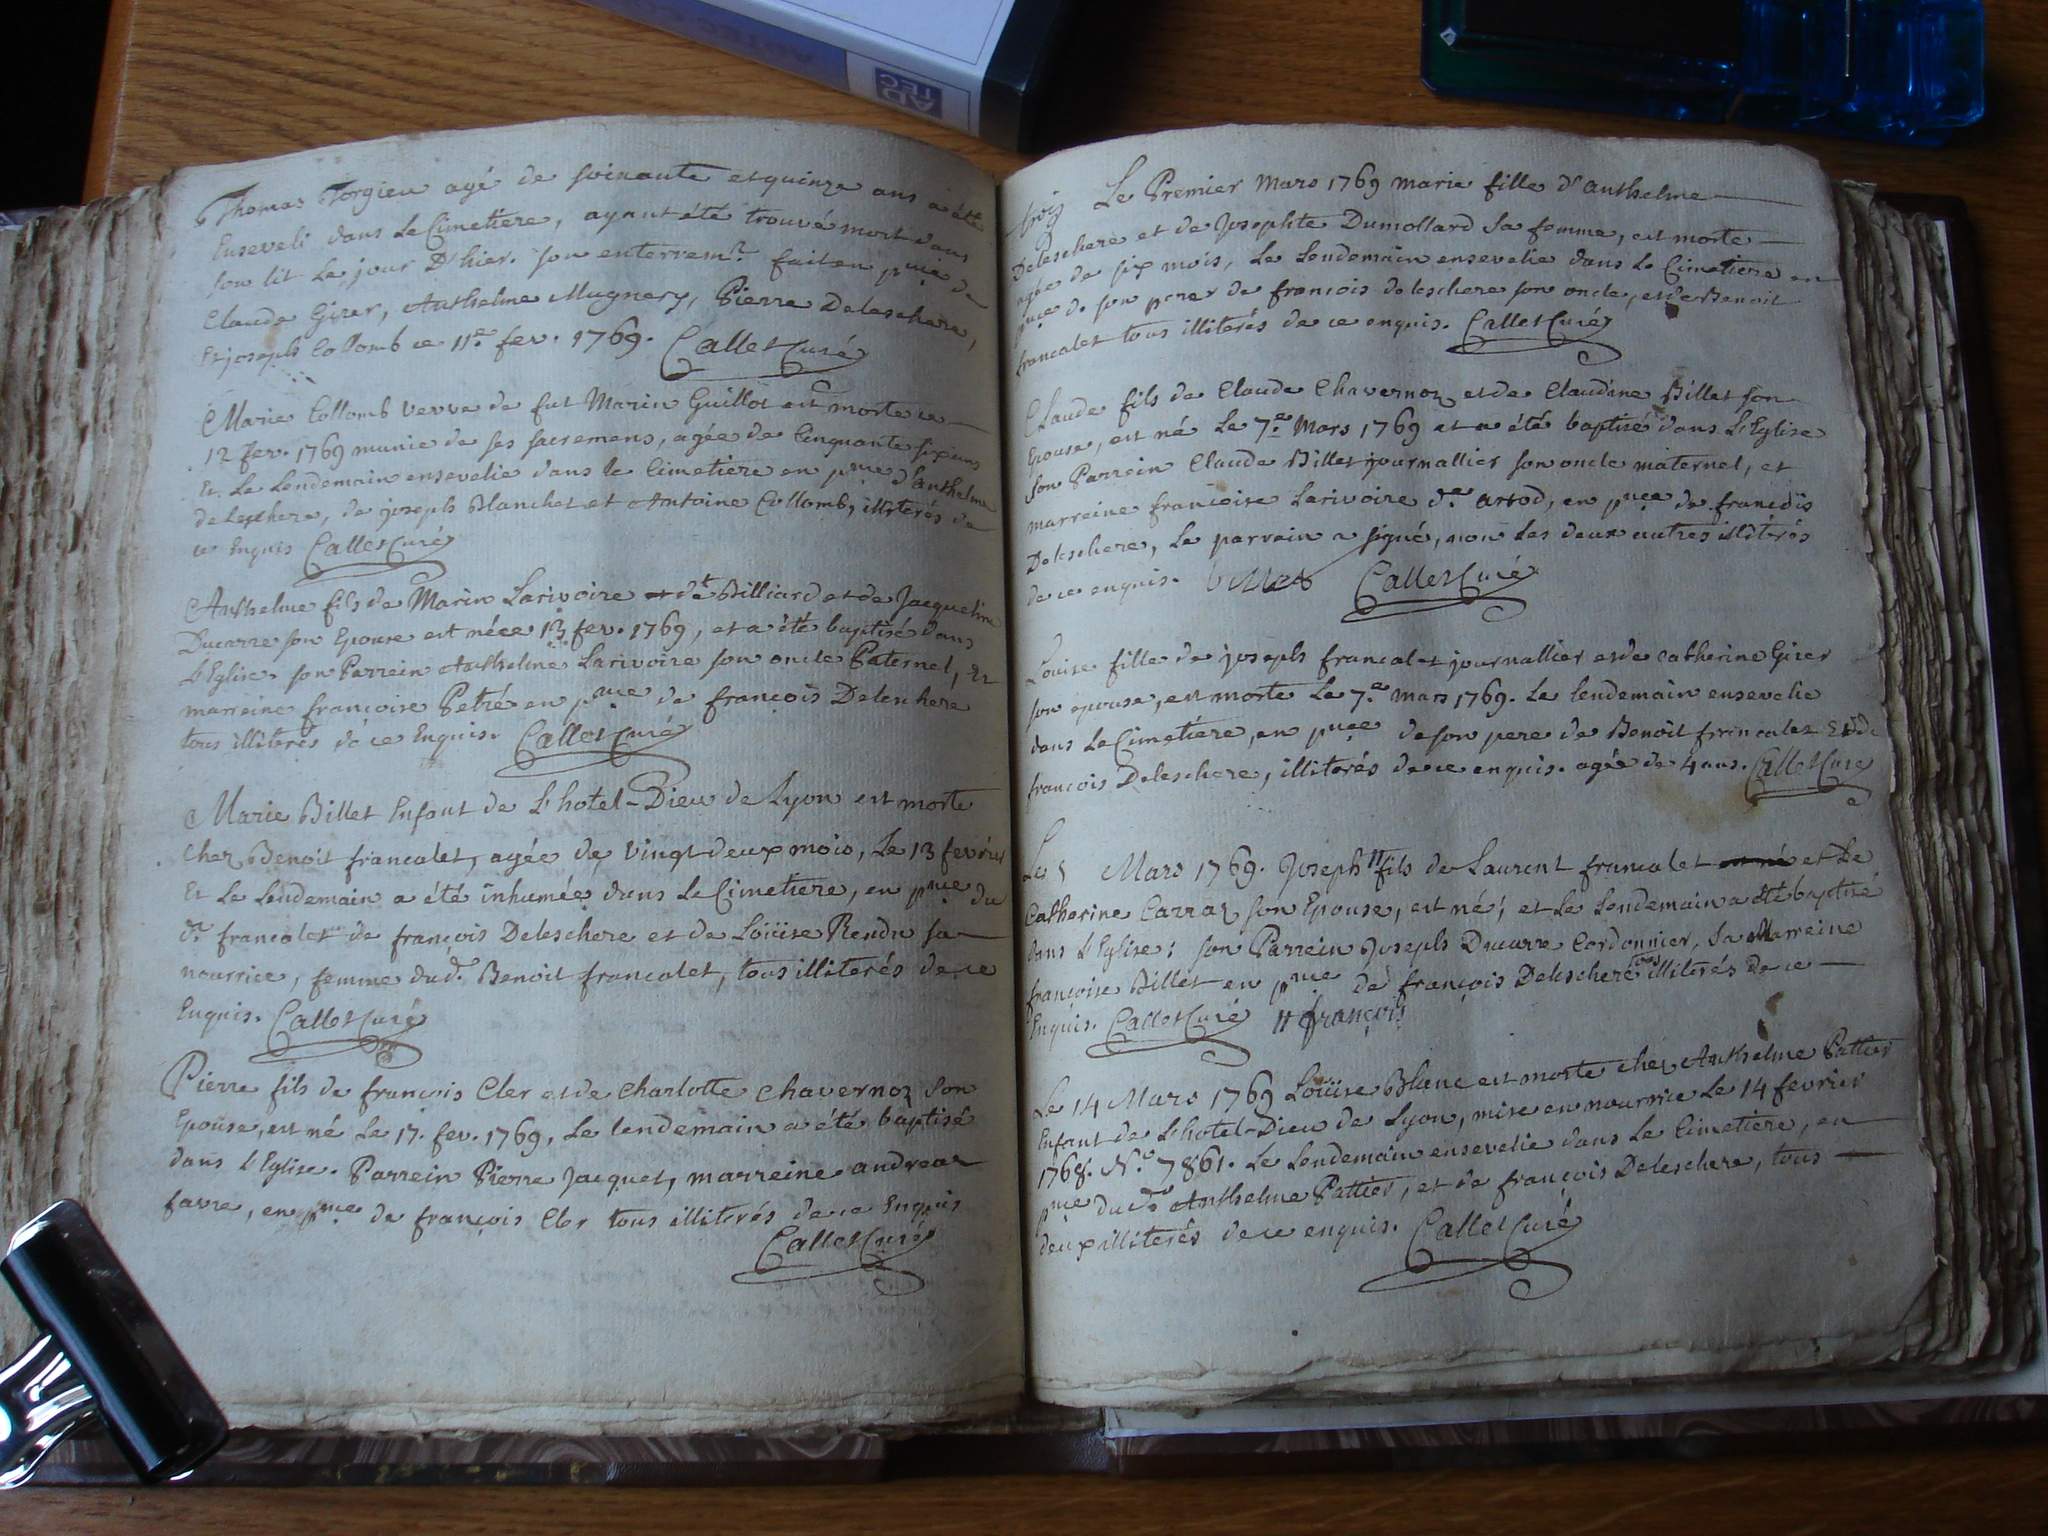 AD
TEC
Thomas Torgieu agé de soixante et quinze ans a été
Enseveli dans Le Cimetiere, ayant été trouvé mort dans
son lit Le jour D'hier. son enterremt. fait en pnce de
Claude Girer, Anthelme Mugnery, Pierre Deleschere,
Et joseph Collomb ce 11e fev. 1769. Callet Curé
Marie Collomb vevve de fut Marin Guillot est morte ce
12 fev. 1769 munie de ses sacremens, agée de Cinquante six ans
Et Le Lendemain ensevelie dans le Cimetiere en pnce d'anthelme
deleschere, de joseph Blanchet et Antoine Collomb, illiterés de
ce Enquis Callet Curé
Anthelme fils de Marin Larivoire dt Billiard et de Jacqueline
Ducarre son Epouse est né ce 13 fev. 1769, et a été baptisé dans
L'Eglise, son Parrein Anthelme Larivoire son oncle Paternel, Et
marreine françoise Petré en pnce de françois Deleschere
tous illiterés de ce Enquis. Callet Curé
Marie Billet Enfant de L'hotel-Dieu de Lyon est morte
chez Benoit francalet, agée de vingt deux mois, Le 13 fevrier
Et Le Lendemain a été inhumée dans Le Cimetiere, en pnce du
dt francalet de françois Deleschere et de Loüise Rendu sa
nourrice, femme dud. Benoit francalet, tous illiterés de ce
Enquis. Callet Curé
Pierre fils de françois Cler et de Charlotte Chavernoz son
Epouse, est né Le 17. fev. 1769, Le lendemain a été baptisé
dans L'Eglise. Parrein Pierre Jacquet, marreine andreaz
favre, en pnce de françois Cler tous illiterés de ce Enquis
Callet Curé
Le Premier Mars 1769 marie fille d'anthelme
Deleschere et de Josephte Dumollard sa femme, est morte
agée de six mois, Le Lendemain ensevelie dans Le Cimetiere en
pnce de son perer de françois deleschere son oncle, et de Benoit
francalet tous illiterés de ce enquis. Callet Curé
Claude fils de Claude Chavernoz et de Claudine Billet son
Epouse, est né Le 7e Mars 1769 et a été baptisé dans L'Eglise
son Parrein Claude Billet journallier son oncle maternel, et
marreine françoise Larivoire de artod, en pnce de françois
Deleschere, Le parrain a signé, non Les deux autres illiterés
de ce enquis. billet Callet Curé
Louise fille de joseph francalet journallier et de catherine Girer
son épouse, est morte Le 7e mars 1769. Le lendemain ensevelie
dans Le Cimetiére, en pnce de son pere de Benoit francalet Et de
françois Deleschere, illiterés de ce enquis. agée de 4 ans. Callet Curé
Le 8 Mars 1769. Joseph fils de Laurent francalet et de
Catherine Carraz son Epouse, est né; et Le Lendemain a été baptisé
dans L'Eglise; son Parrein Joseph Ducarre Cordonnier, sa Marreine
françoise Billet en pnce de françois Deleschere tous illiterés de ce
Enquis. Callet Curé françois
Le 14 Mars 1769 Loüise Blanc est morte chez Anthelme Pattier
Enfant de L'hotel-Dieu de Lyon, mise en nourrice Le 14 fevrier
1768. N.o 7861. Le Lendemain ensevelie dans Le Cimetiere, en
pnce dudt Anthelme Pattier, et de françois Deleschere, tous
deux illiterés de ce enquis. Callet Curé